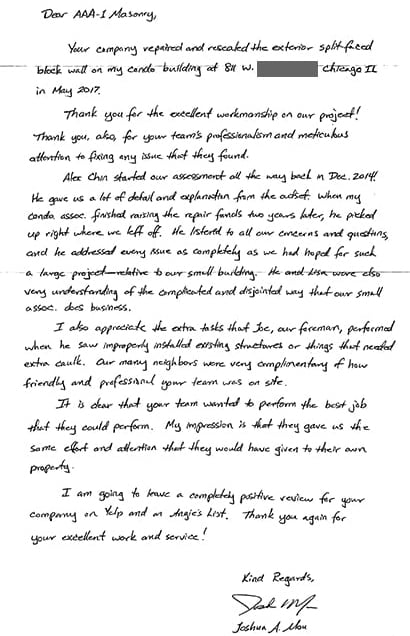 Dear AAA-1 Masonry,
Your company repaired and resealed the exterior split-faced
block wall on my condo building at 811 W. Chicago IL
in May 2017.
Thank you for the excellent workmanship on our project!
Thank you, also, for your team's professionalism and meticulous
attention to fixing any issue that they found.
Alex Chin started our assessment all the way back in Dec. 2014!
He gave us a lot of detail and explanation from the outset. When my
condo assoc. finished raising the repair funds two years later, he picked
up right where we left off. He listened to all our concerns and questions,
and he addressed every issue as completely as we had hoped for such
a large project—relative to our small building. He and Lisa were also
very understanding of the complicated and disjointed way that our small
assoc. does business.
I also appreciate the extra tasks that Joe, our foreman, performed
when he saw improperly installed existing structures or things that needed
extra caulk. Our many neighbors were very complimentary of how
friendly and professional your team was on site.
It is clear that your team wanted to perform the best job
that they could perform. My impression is that they gave us the
same effort and attention that they would have given to their own
property.
I am going to leave a completely positive review for your
company on Yelp and on Angie's List. Thank you again for
your excellent work and service!
Kind Regards,
Joshua A.